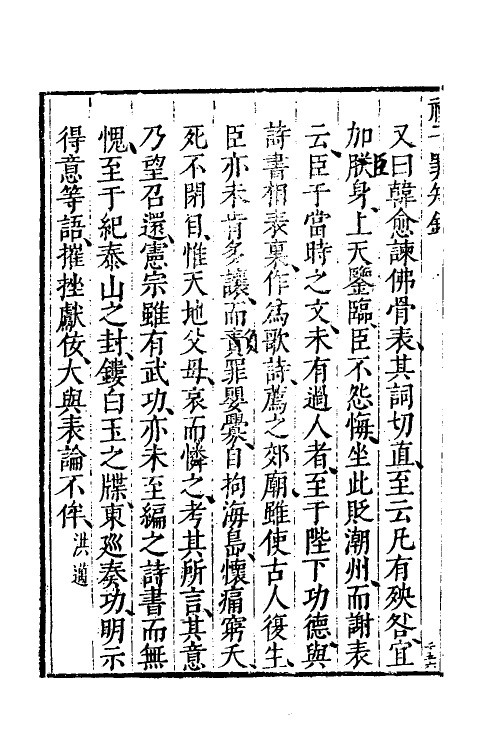 祝子罪知錄
又曰韓愈諫佛骨表其詞切直至云凡有殃咎宜
加臣身上天鑒臨臣不怨悔坐此貶潮州而謝表
云臣于當時之文未有過人者至于陛下功德與
詩書相表裏作爲歌詩薦之郊廟雖使古人復生
臣亦未肯多讓而負罪嬰釁自拘海島懷痛窮天
死不閉目惟天地父母哀而憐之考其所言其意
乃望召還憲宗雖有武功亦未至編之詩書而無
愧至于紀泰山之封鏤白玉之牒東廵奏功明示
得意等語摧挫獻佞大與表論不侔洪邁